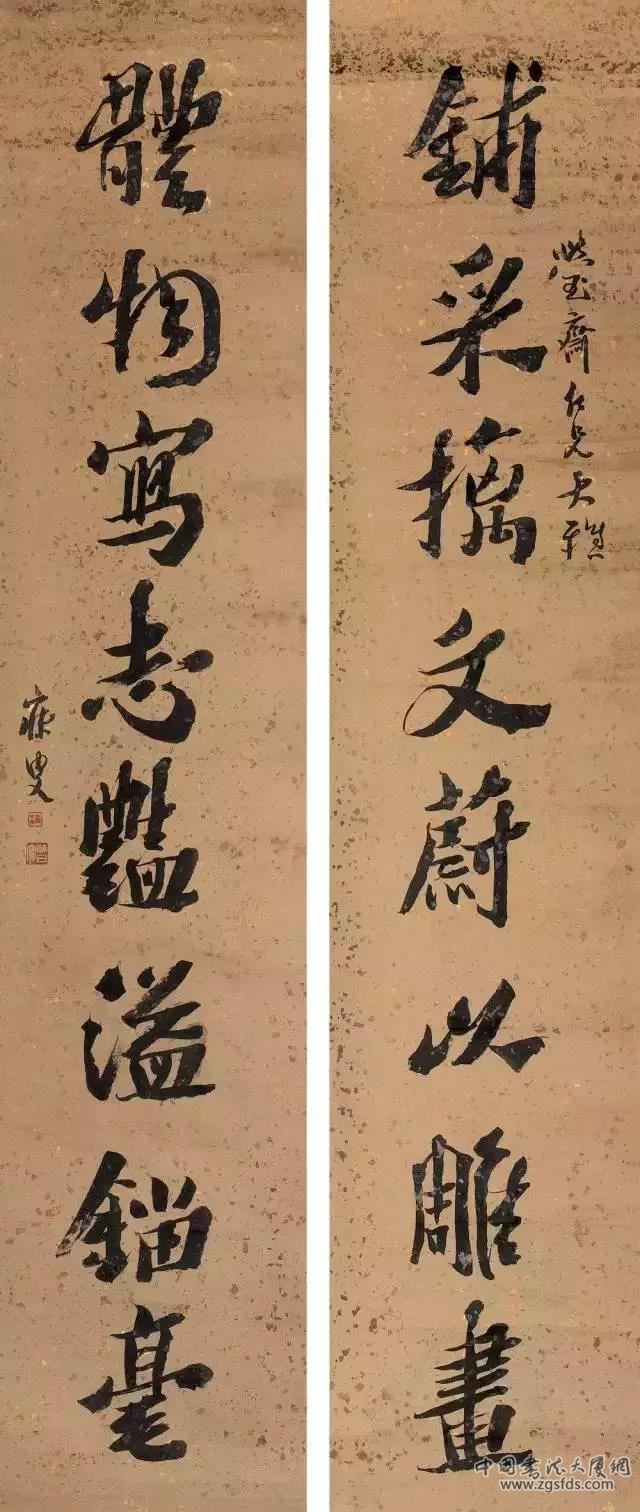 鋪采摛文蔚以雕畫
玉齋仁兄大雅
體物寫志豔溢錙毫
寐叟
中国书法大厦網
www.zgsfds.com